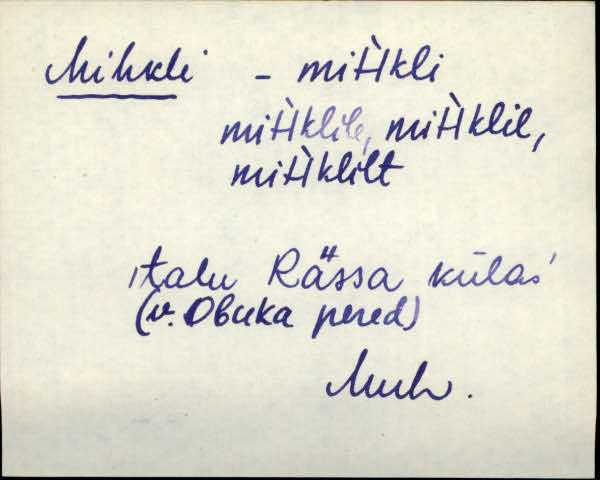 Mihkli – miH̀kli
miH̀klile, miH̀klil,
miH̀klilt
talu Rässa külas
(v. Obuka pered)
Muh.